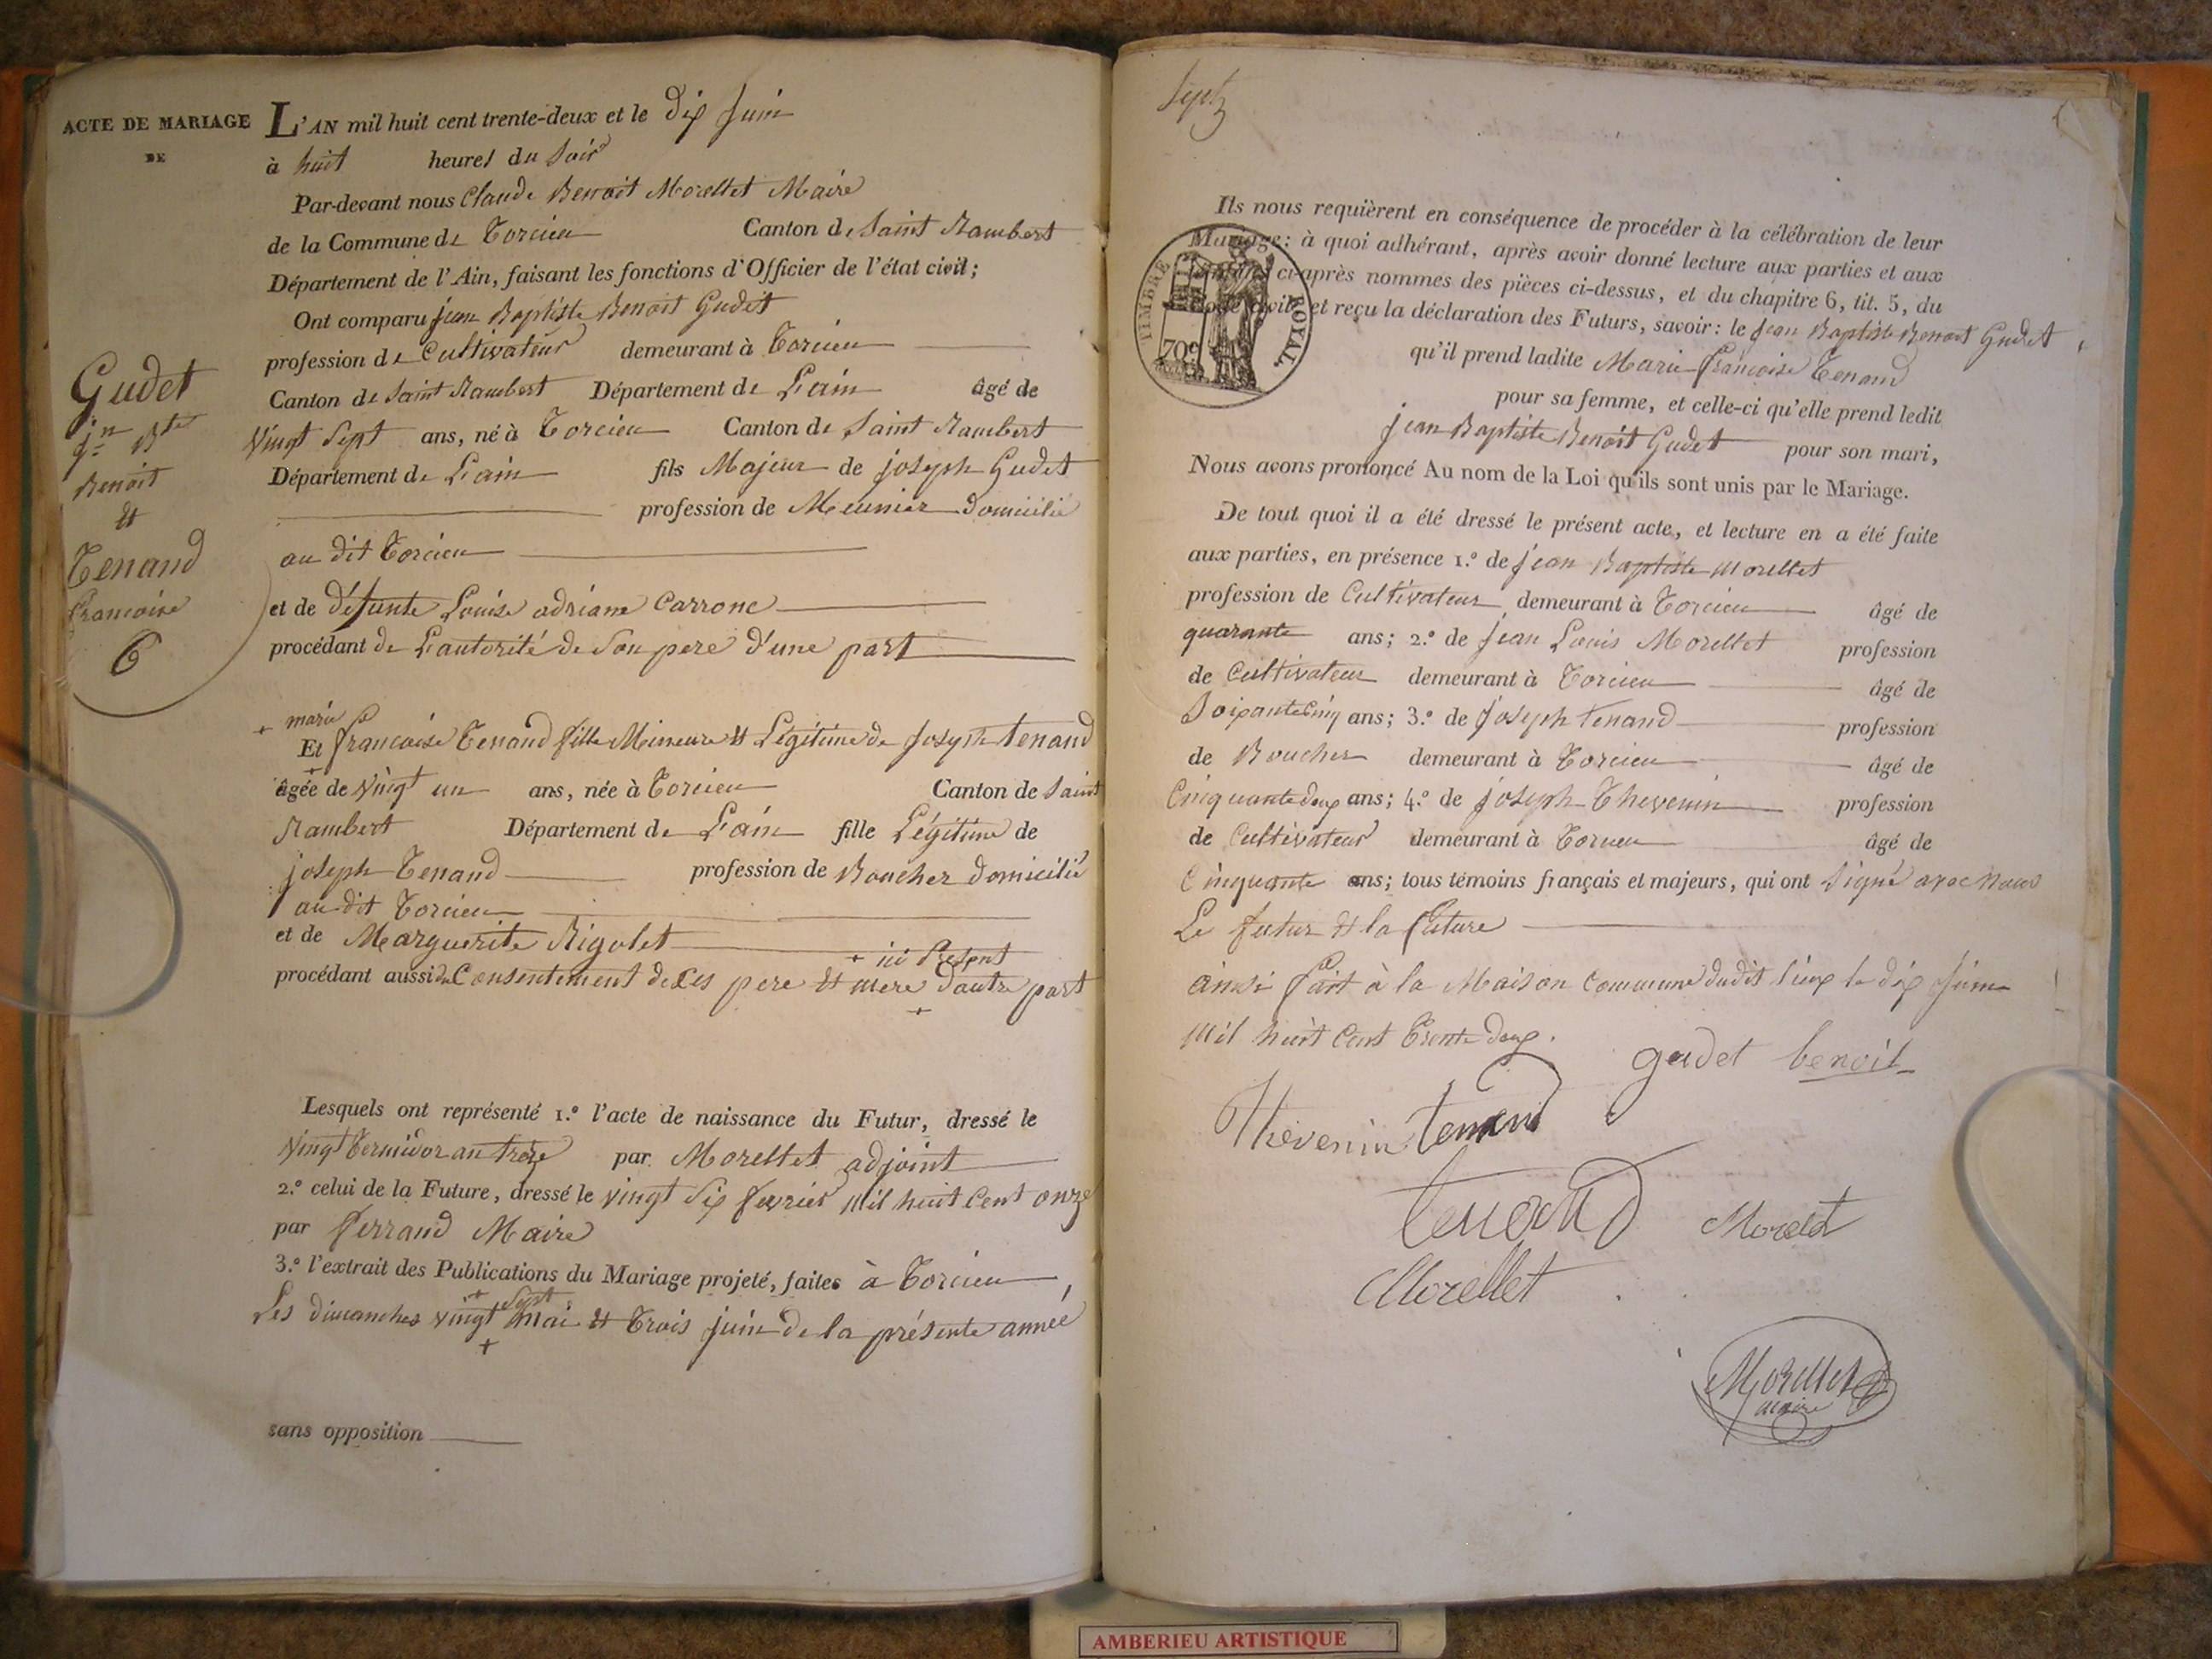 ACTE DE MARIAGE
DE
Gudet
jn Bte
Benoit
et
Tenand
francoise
6
L'AN mil huit cent trente-deux et le dix juin
à huit heures du soir
Par-devant nous Claude Benoit Morellet Maire
de la Commune de Torcieu Canton de Saint Rambert
Département de l'Ain, faisant les fonctions d'Officier de l'état civil;
Ont comparu jean Baptiste Benoit Gudet
profession de Cultivateur demeurant à Torcieu
Canton de Saint Rambert Département de L'ain âgé de
vingt sept ans, né à Torcieu Canton de Saint Rambert
Département de L'ain fils Majeur de joseph Gudet
profession de Meunier domicilié
au dit Torcieu
et de défunte Louise adriane Carrone
procédant de L'autorité de Son pere d'une part
+ marie
Et francoise Tenand fille Mineure et Légitime de Joseph tenand
+
âgée de vingt un ans, née à Torcieu Canton de Saint
Rambert Département de L'ain fille Légitime de
joseph Tenand profession de Boucher domicilié
au dit Torcieu
et de Marguerite Rigolet
+ ici Présent
procédant aussi du Consentement de Ces pere et mere d'autre part
+
Lesquels ont représenté 1.º l'acte de naissance du Futur, dressé le
vingt Termidor an treize par Morellet adjoint
2.º celui de la Future, dressé le vingt six fevrier mil huit Cent onze
par ferrand Maire
3.º l'extrait des Publications du Mariage projeté, faites à Torcieu,
+ Sept
Les dimanches vingt mai et Trois juin de la présente année
+
sans opposition
Sept
TIMBRE ROYAL
70c
Ils nous requièrent en conséquence de procéder à la célébration de leur
Mariage: à quoi adhérant, après avoir donné lecture aux parties et aux
témoins ci-après nommés des pièces ci-dessus, et du chapitre 6, tit. 5, du
Code civil, et reçu la déclaration des Futurs, savoir: le jean Baptiste Benoit Gudet,
qu'il prend ladite Marie francoise Tenand
pour sa femme, et celle-ci qu'elle prend ledit
jean Baptiste Benoit Gudet pour son mari,
Nous avons prononcé Au nom de la Loi qu'ils sont unis par le Mariage.
De tout quoi il a été dressé le présent acte, et lecture en a été faite
aux parties, en présence 1.º de jean Baptiste Morellet
profession de Cultivateur demeurant à Torcieu âgé de
quarante ans; 2.º de jean Louis Morellet profession
de Cultivateur demeurant à Torcieu âgé de
Soixante Cinq ans; 3.º de Joseph tenand profession
de Boucher demeurant à Torcieu âgé de
Cinquante deux ans; 4.º de joseph Thevenin profession
de Cultivateur demeurant à Torcieu âgé de
Cinquante ans; tous témoins français et majeurs, qui ont Signé avec Nous
Le futur et la future
ainsi fait à la Maison Commune dudit Lieux le dix juin
Mil huit Cent Trente deux.
gudet benoit
Thevenin tenand
tenand Morelet
Morellet
Morellet
maire
AMBERIEU ARTISTIQUE